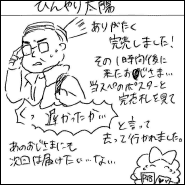 ひんやり太陽
ありがたく
完売しました!
その1時間後に
来たおじさま…
当スペのポスターと
完売札を見て
くっ 遅かったか…
と言って
去って行かれました。
あのおじさまにも
次回は届けたい…なぃ…